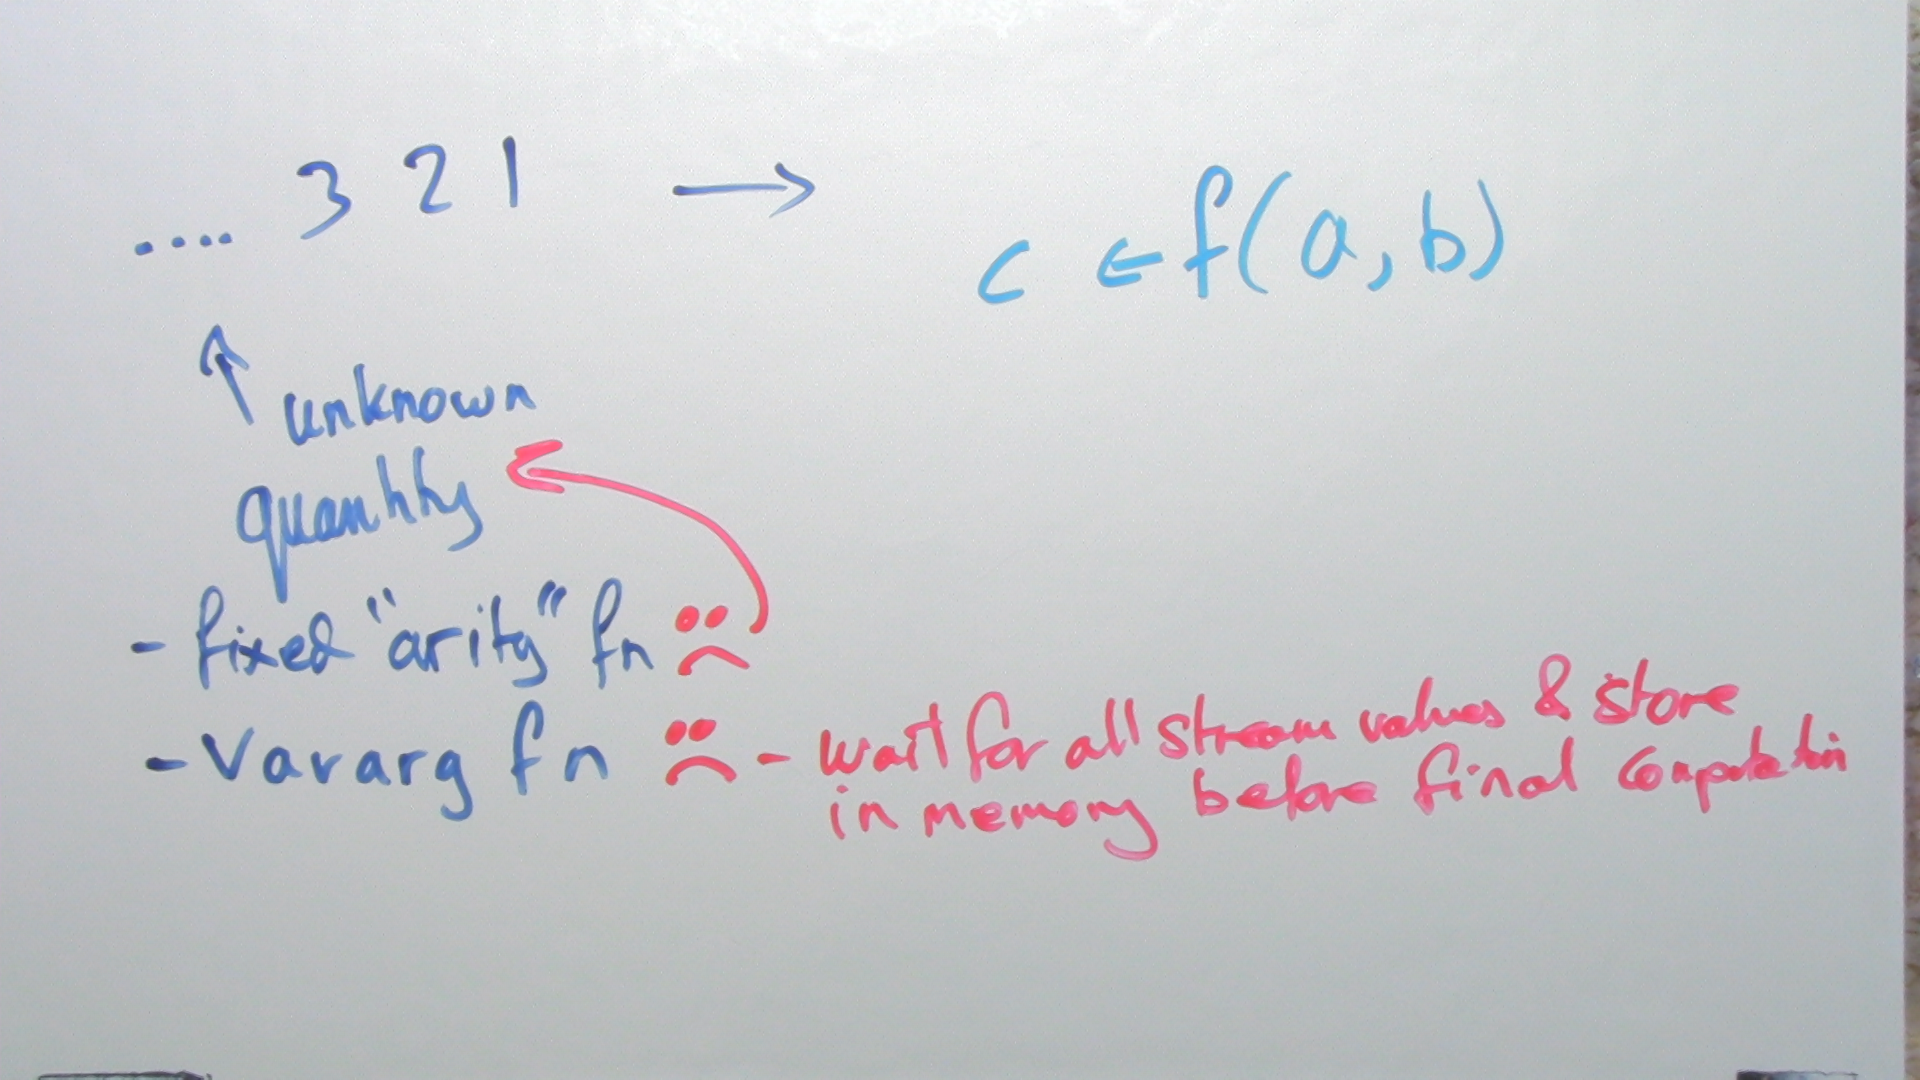 .... 3 2 1 →
c ← f(a, b)
↑ unknown
quantity
- fixed "arity" fn ☹
- Vararg fn ☹ - wait for all stream values & store
in memory before final computation